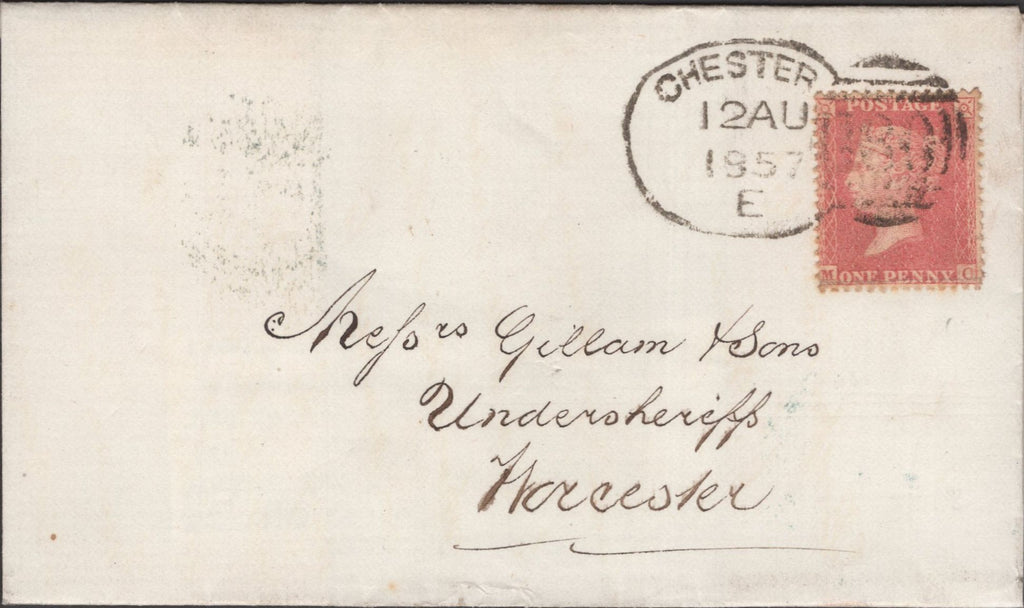 CHESTER
12AU
1857
E
POSTAGE
M ONE PENNY C
Messrs Gillam & Sons
Undersheriffs
Worcester